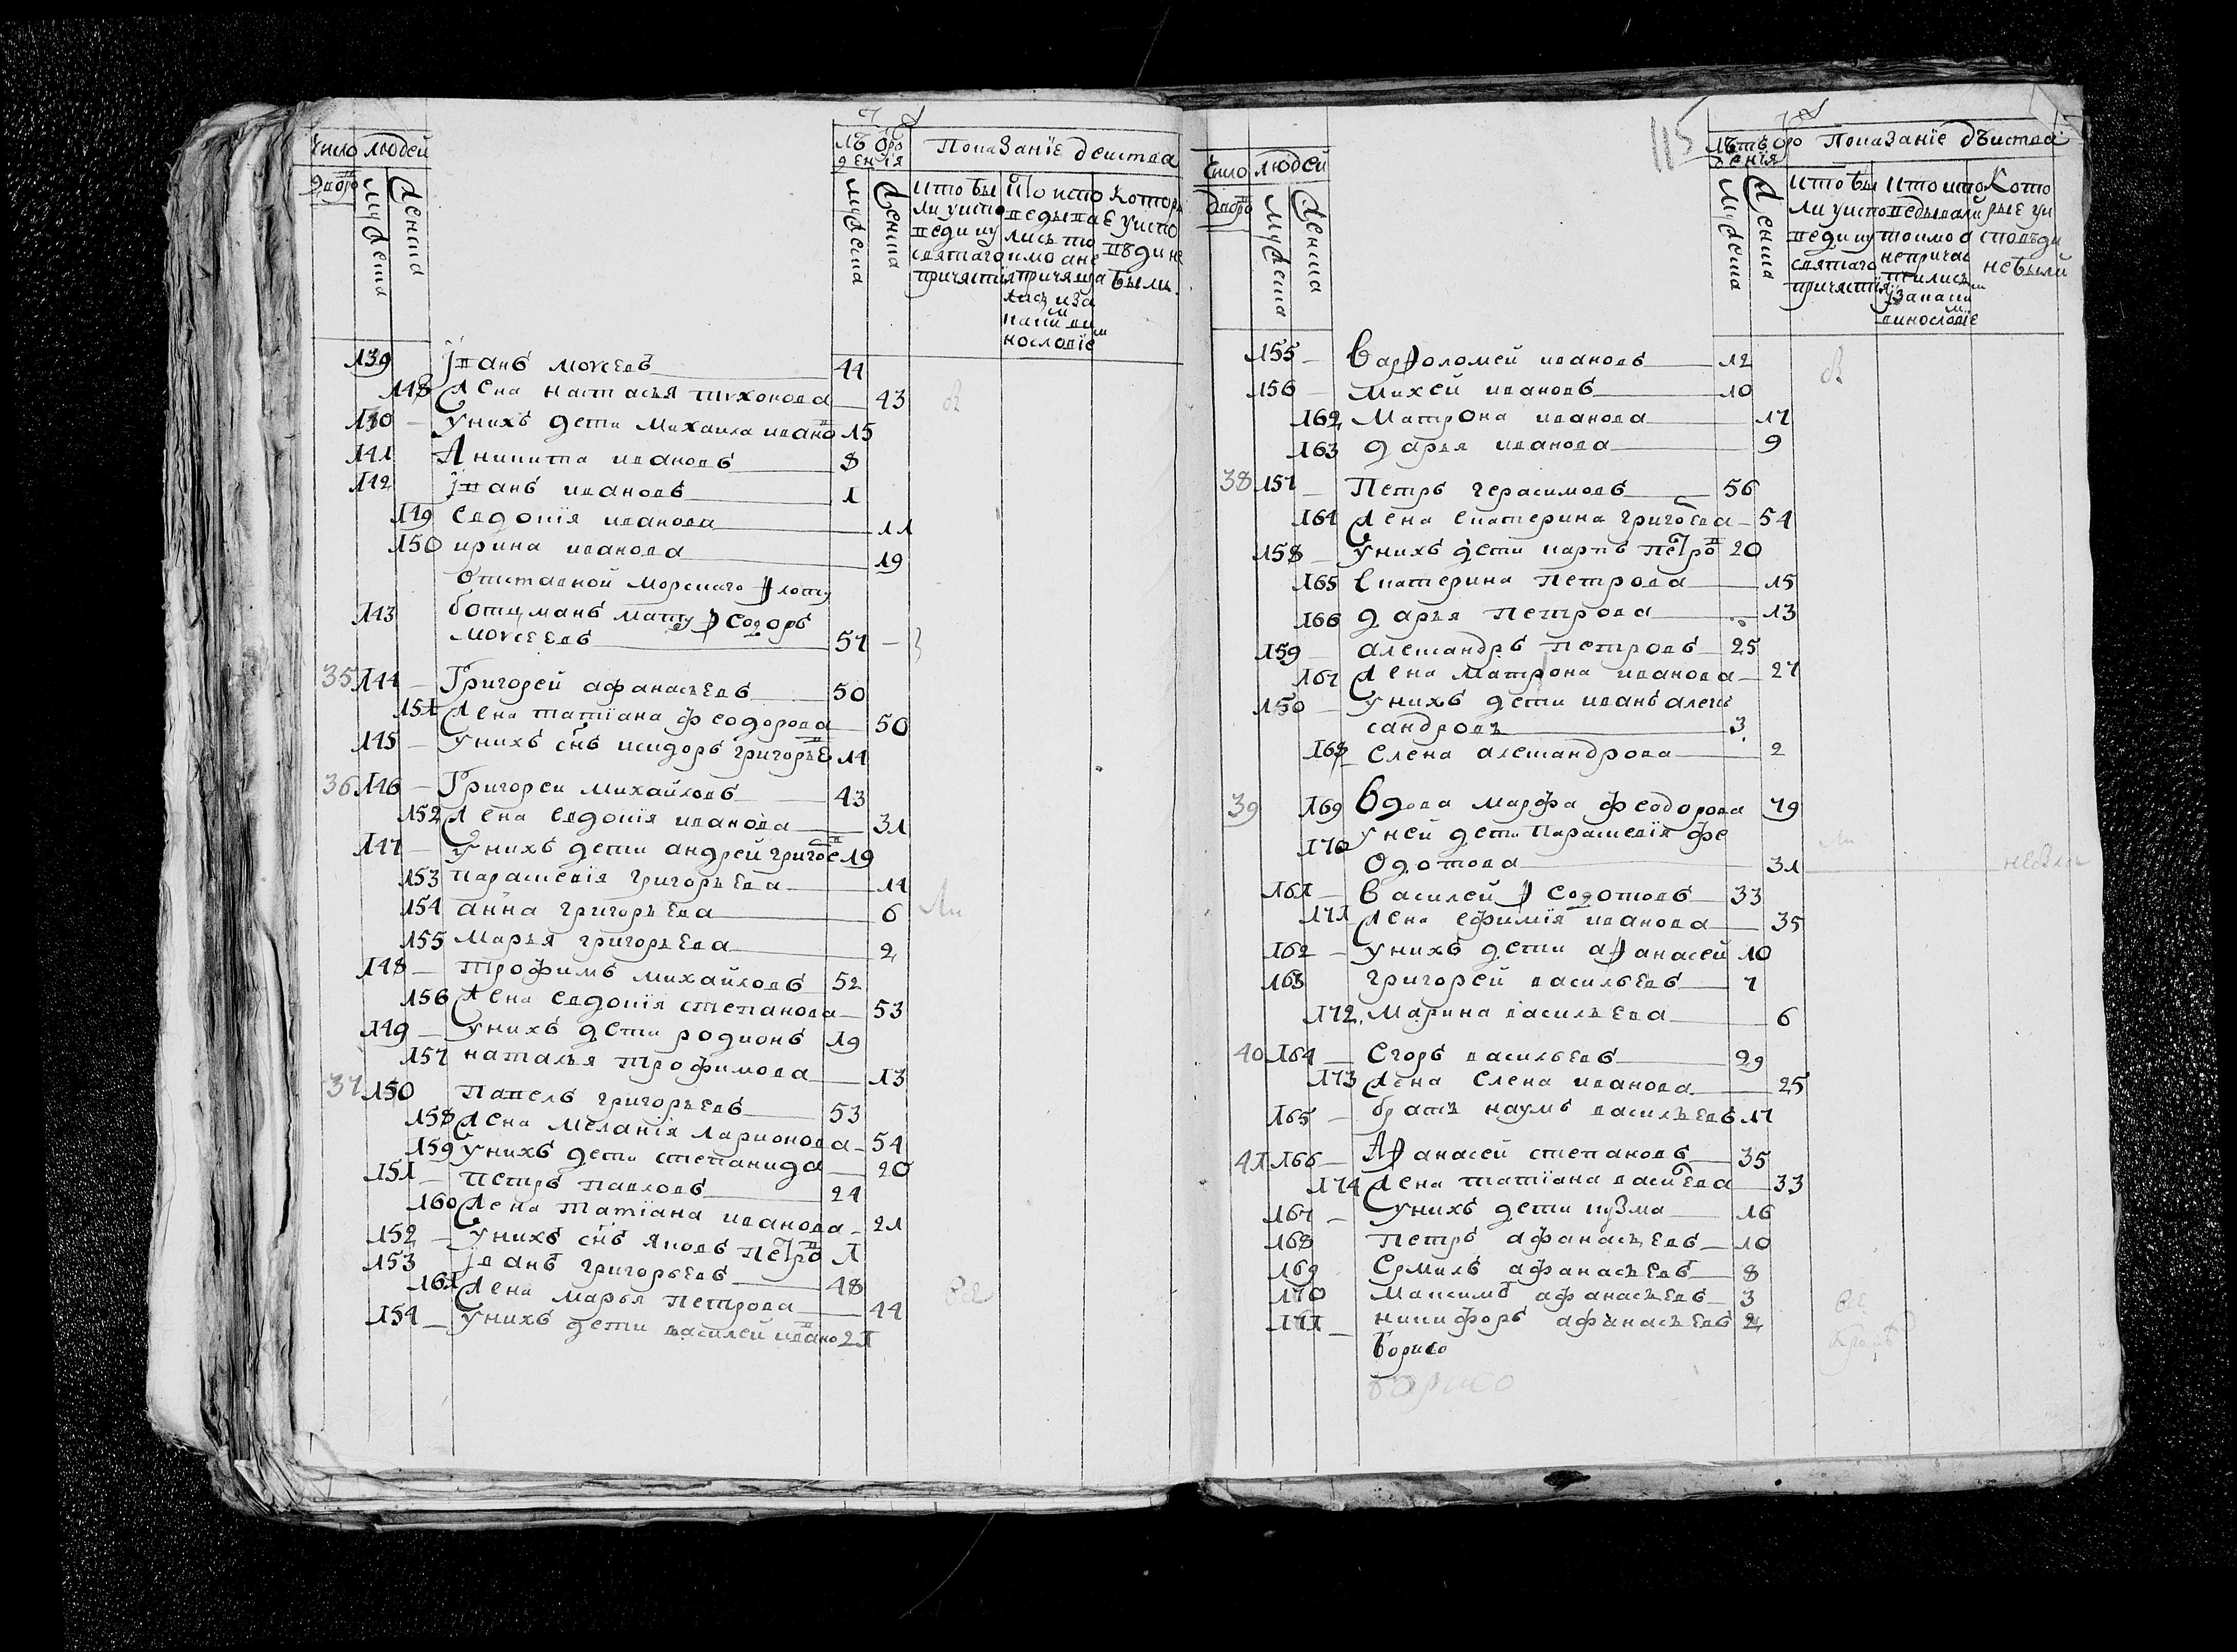 Число людей
Дворо
Мужеска
Женска
Лѣ Ѿро
денія
Мужеска
Женска
Показаніе деиства
кто бы
ли уиспо
веди и у
святаго
причястія
Кто испо
ведыва
лись то
кмо а не
причяща
лись и за
каким ви
нословіем
Которы
е уиспо
вѣди не
были
139 Іванъ Моѵсеевъ 44
148 Жена Настасья Тихонова 43
140 У нихъ дети Михаила Ивано 15
141 Аникита Ивановъ 8
142 Іванъ Ивановъ 1
149 Евдокія Иванова 11
150 Ирина Иванова 19
Отставной морскаго флоту
143 ботцманъ мату Ѳедоръ
Моѵсеевъ 57
35 144 Григорей Афанасьевъ 50
151 Жена Татіана Феодорова 50
145 У нихъ снъ Исидоръ Григорье 14
36 146 Григореи Михайловъ 43
152 Жена Евдокія Иванова 31
147 У нихъ дети Андрей Григоре 19
153 Параскевія Григорьева 14
154 Анна Григорьева 6
155 Марья Григорьева 2
148 Трофимъ Михайловъ 52
156 Жена Евдокія Степанова 53
149 У нихъ дети Родионъ 19
157 Наталья Трофимова 13
37 150 Павелъ Григорьевъ 53
158 Жена Меланія Ларионова 54
159 У нихъ дети Степанида 20
151 Петръ Павловъ 24
160 Жена Татіана Иванова 21
152 У нихъ снъ Яковъ Петро 1
153 Іванъ Григорьевъ 48
161 Жена Марья Петрова 44
154 У нихъ дети Василей Ивано 21
115
Число людей
Дворо
Мужеска
Женска
Лѣтъ Ѿро
денія
Мужеска
Женска
Показаніе дѣиства
кто бы
ли уиспо
веди и у
святаго
причястія
Кто испо
ведывали
токмо а
не причас
тились
и за каким
винословіе
Кото
рые уи
сповѣди
небыли
155 Варфоломей Ивановъ 12
156 Михей Ивановъ 10
162 Матрона Иванова 17
163 Дарья Иванова 9
38 157 Петръ Герасимовъ 56
164 Жена Екатерина Григоева 54
158 У нихъ дети Карпъ Петро 20
165 Екатерина Петрова 15
166 Дарья Петрова 13
159 Александръ Петровъ 25
167 Жена Матрона Иванова 27
150 У нихъ дети Иванъ Алек
сандровъ 3
168 Елена Александрова 2
39 169 Вдова Марфа Феодорова 79
170 У ней дети Параскевія Фе
одотова 31
161 Василей Ѳедотовъ 33
171 Жена Ефимія Иванова 35
162 У нихъ дети Афанасей 10
163 Григорей Васильевъ 7
172 Марина Васильева 6
40 164 Егоръ Васильевъ 29
173 Жена Елена Иванова 25
165 братъ Наумъ Васильевъ 17
41 166 Афанасей Степановъ 35
174 Жена Татіана Васиева 33
167 У нихъ дети Кузма 16
168 Петръ Афанасьевъ 10
169 Ермилъ Афанасьевъ 8
170 Максимъ Афанасьевъ 3
171 Никифоръ Афанасьевъ 2
Борисо